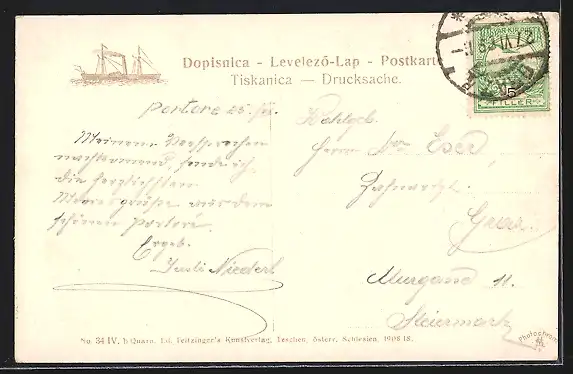 Dopisnica - Levelező-Lap - Postkarte
Tiskanica — Drucksache.
MAGYAR KIR
5
FILLER
Portoré 25.
Meinem Versprechen
nachkommend sende ich
die herzlichsten
Meeresgrüße aus dem
schönen Portoré.
Ergeb.
Niederl
Wohlgeb.
Herrn Dr. Eser,
Zahnarzt.
Graz.
Murgasse 11.
Steiermark
No. 34 IV. b Quarn. Ed. Feitzinger's Kunstverlag, Teschen, österr. Schlesien. 1908 18.